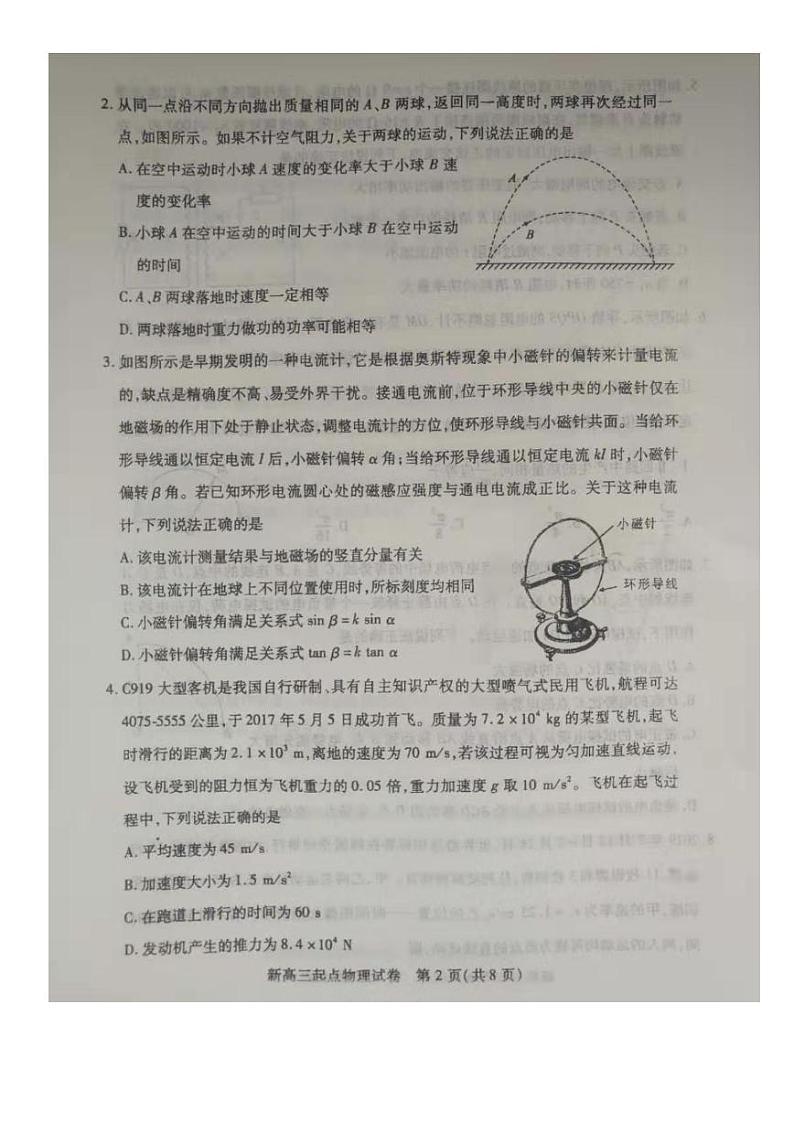 2. 从同一点沿不同方向抛出质量相同的 A、B 两球,返回同一高度时,两球再次经过同一
点,如图所示。如果不计空气阻力,关于两球的运动,下列说法正确的是
A. 在空中运动时小球 A 速度的变化率大于小球 B 速
度的变化率
B. 小球 A 在空中运动的时间大于小球 B 在空中运动
的时间
C. A、B 两球落地时速度一定相等
D. 两球落地时重力做功的功率可能相等
A
B
3. 如图所示是早期发明的一种电流计,它是根据奥斯特现象中小磁针的偏转来计量电流
的,缺点是精确度不高、易受外界干扰。接通电流前,位于环形导线中央的小磁针仅在
地磁场的作用下处于静止状态,调整电流计的方位,使环形导线与小磁针共面。当给环
形导线通以恒定电流 I 后,小磁针偏转 α 角;当给环形导线通以恒定电流 kI 时,小磁针
偏转 β 角。若已知环形电流圆心处的磁感应强度与通电电流成正比。关于这种电流
计,下列说法正确的是
A. 该电流计测量结果与地磁场的竖直分量有关
B. 该电流计在地球上不同位置使用时,所标刻度均相同
C. 小磁针偏转角满足关系式 sin β = k sin α
D. 小磁针偏转角满足关系式 tan β = k tan α
小磁针
环形导线
4. C919 大型客机是我国自行研制、具有自主知识产权的大型喷气式民用飞机,航程可达
4075-5555 公里,于 2017 年 5 月 5 日成功首飞。质量为 7.2 × 10⁴ kg 的某型飞机,起飞
时滑行的距离为 2.1 × 10³ m,离地的速度为 70 m/s,若该过程可视为匀加速直线运动.
设飞机受到的阻力恒为飞机重力的 0.05 倍,重力加速度 g 取 10 m/s²。飞机在起飞过
程中,下列说法正确的是
A. 平均速度为 45 m/s
B. 加速度大小为 1.5 m/s²
C. 在跑道上滑行的时间为 60 s
D. 发动机产生的推力为 8.4 × 10⁴ N
新高三起点物理试卷 第 2 页(共 8 页)